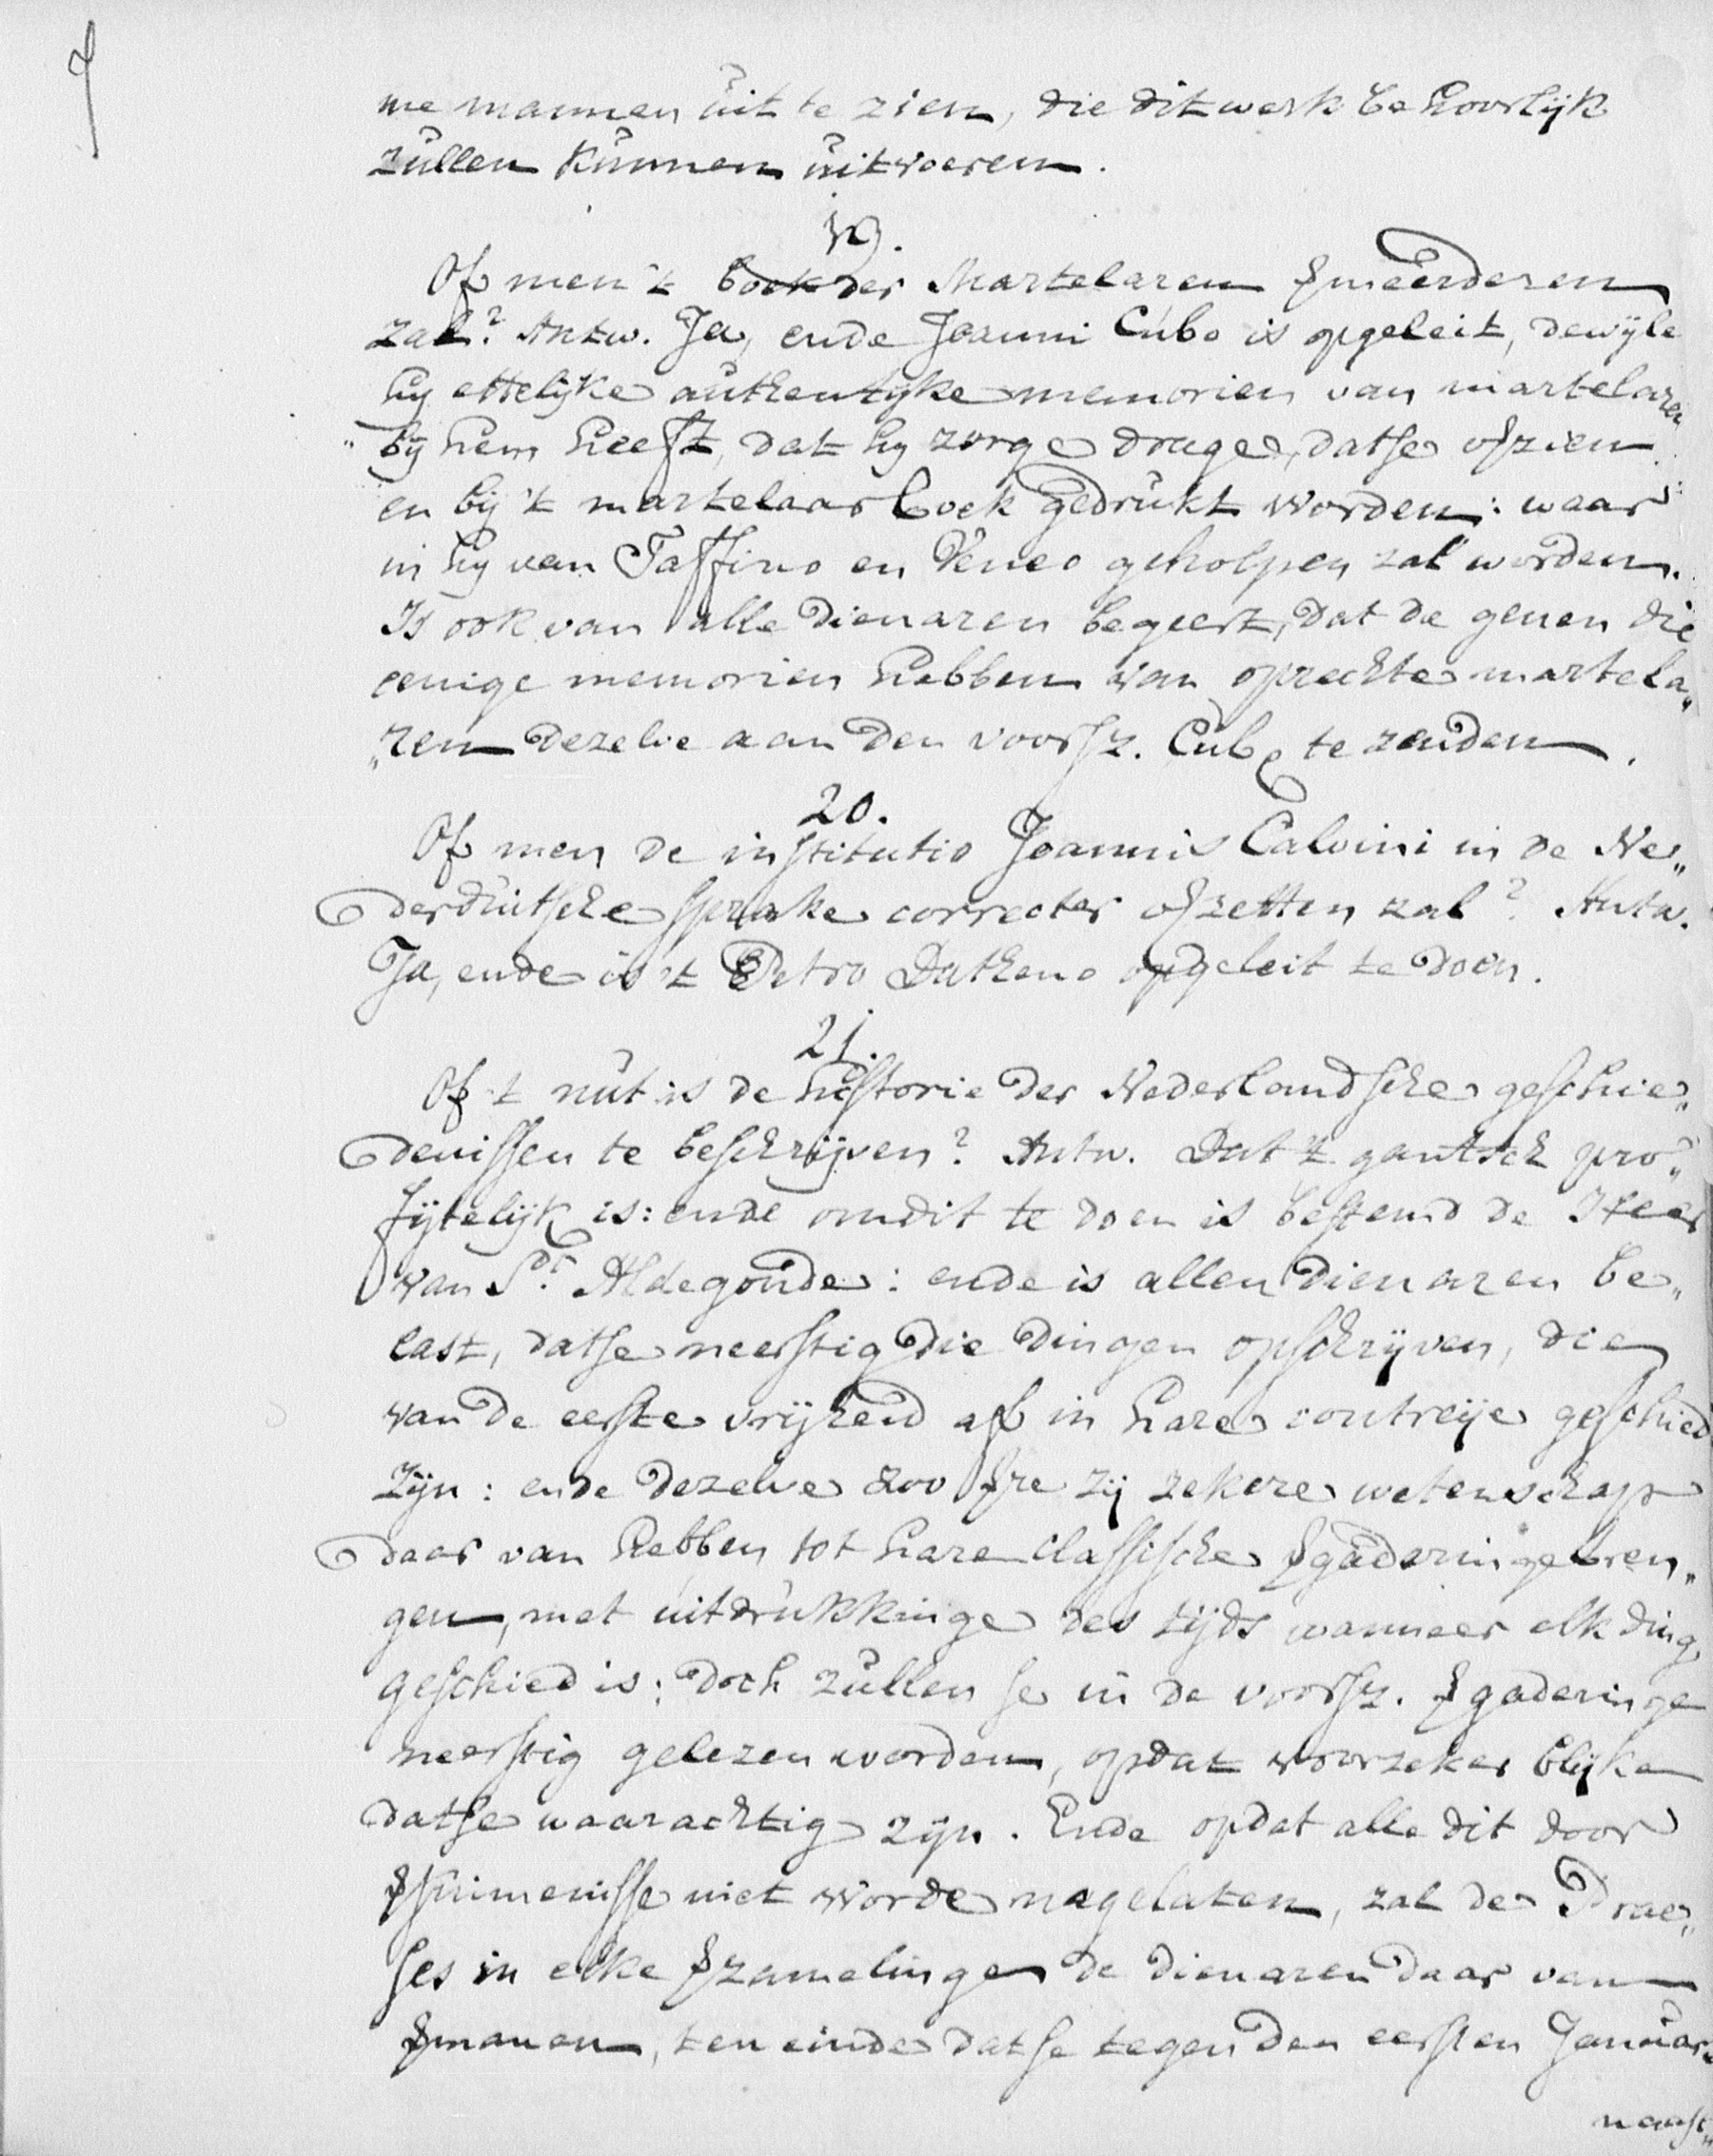 me mannen uit te zien, die dit werk behoorlijk
zullen kunnen uitvoeren.
19.
Of men 't boek der Martelaren vmeerderen
zal? Antw. Ja, ende Joanni Cubo is opgeleit, dewijle
hy ettelijke authentijke memorien van martelaren
„bij hem heeft, dat hy zorge drage, datse ofzien
en bij 't martelaarboek gedrukt worden: waar
in hy van Taffino en Veneo geholpen zal worden.
Is ook van alle dienaren begeert, dat de genen die
eenige memorien hebben van oprechte martela„
„ren dezelve aan den voorsz. Cubo te zenden.
20.
Of men de institutio Joannis Calvini in de Ne„
derduitsche sprake correcter ofzetten zal? Antw.
Ja, ende is 't Petro Datheno opgeleit te doen.
21.
Of 't nut is de historie der Nederlandsche geschie„
denissen te beschrijven? Antw. Dat 't gantsch pro„
fijtelijk is: ende om dit te doen is bestemd de Heer
van St. Aldegonde: ende is allen dienaren be„
last, datse neerstig die dingen opschrijven, die
van de eerste vrijheid af in hare contreije geschied
zijn: ende dezelve zoo vre zij zekere wetenschap
daar van hebben tot hare classische vgaderinge bren„
gen, met uitdrukkinge des tijds wanneer elk ding
geschied is: doch zullen se in de voorsz. vgaderinge
neerstig gelezen worden, opdat voorzeker blijke
datse waarachtig zijn. Ende opdat alle dit door
vsuimenisse niet worde nagelaten, zal de Prae„
ses in elke vzamelinge de dienaren daar van
vmanen, ten einde datse tegen den eersten Januari
naast„